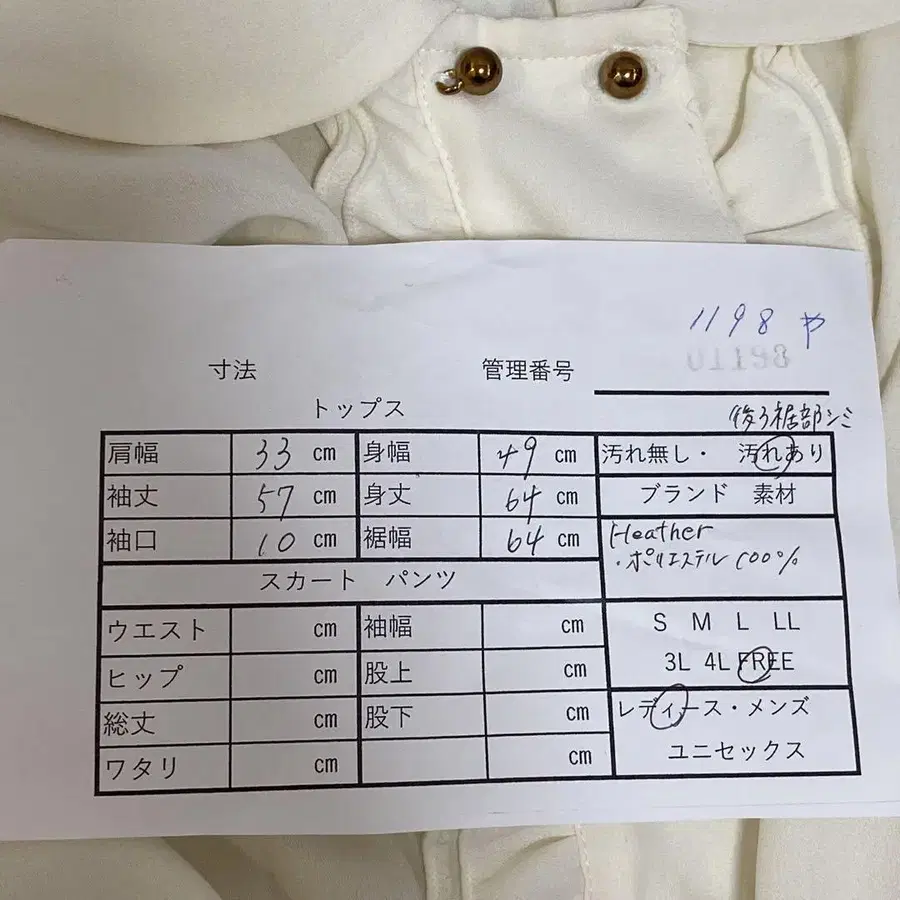 1198 や
01198
寸法 管理番号
トップス
後ろ裾部シミ
肩幅 33 cm 身幅 49 cm 汚れ無し・ 汚れあり
袖丈 57 cm 身丈 64 cm ブランド 素材
袖口 10 cm 裾幅 64 cm Heather
・ポリエステル 100%
スカート パンツ
ウエスト cm 袖幅 cm S M L LL
ヒップ cm 股上 cm 3L 4L FREE
総丈 cm 股下 cm レディース・メンズ
ワタリ cm cm ユニセックス